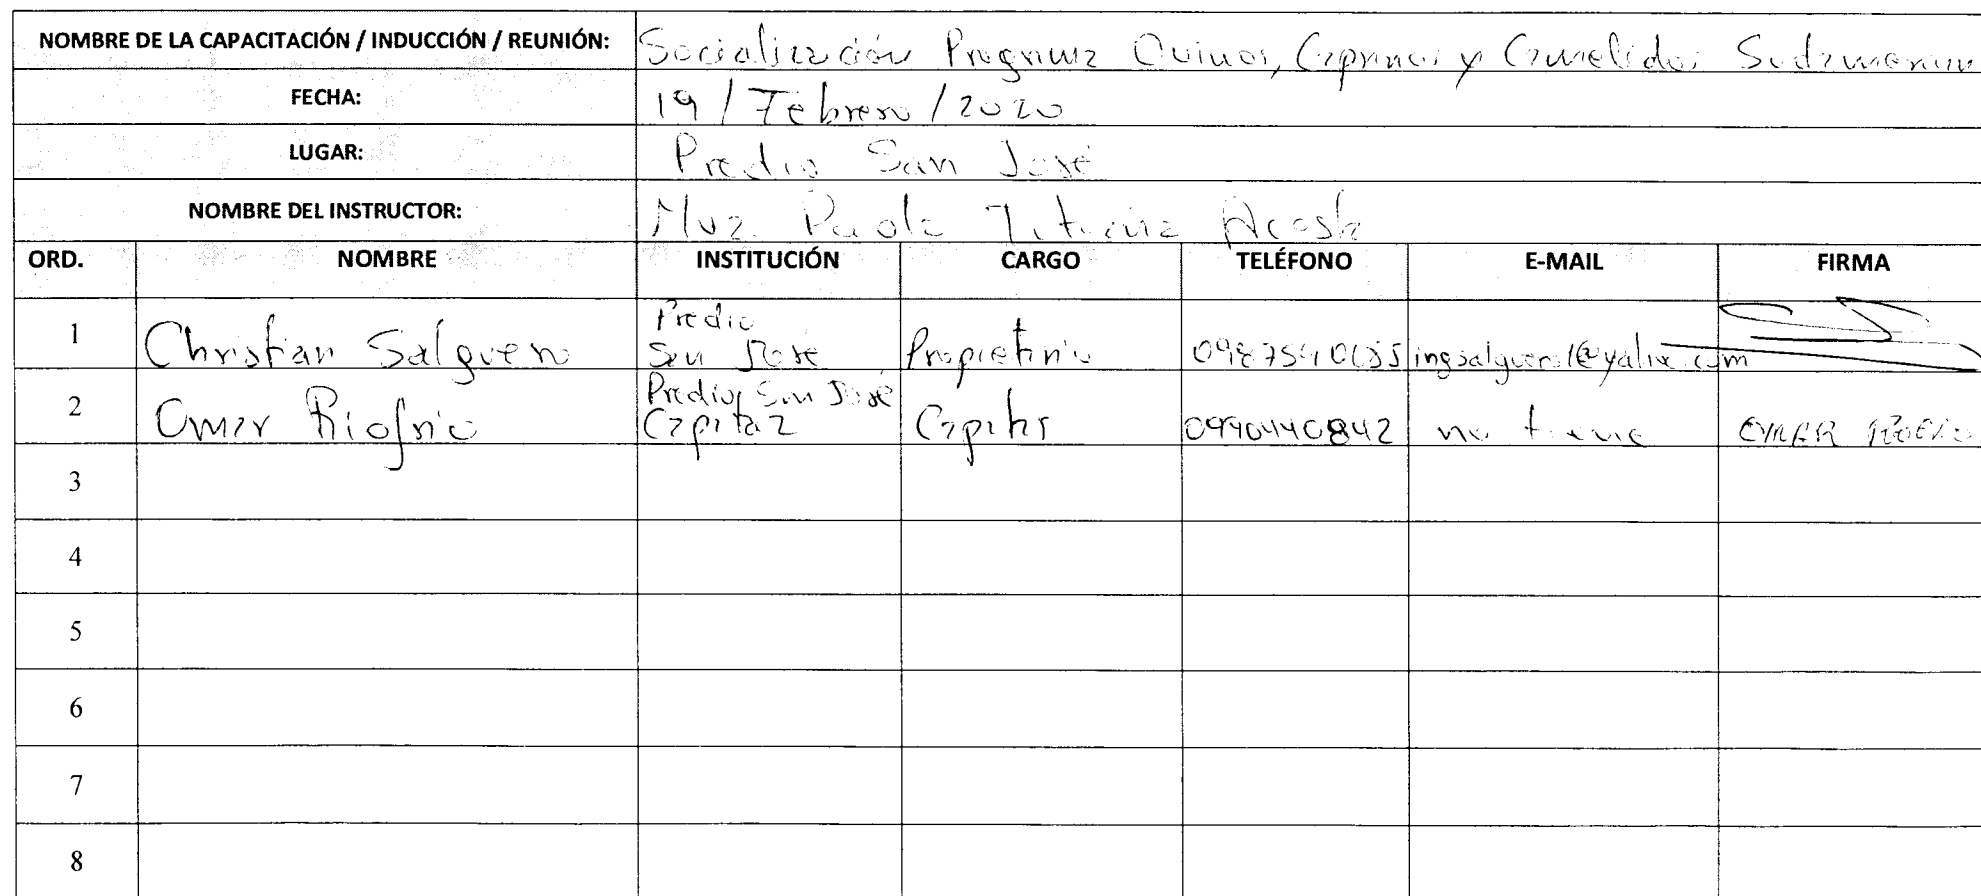 NOMBRE DE LA CAPACITACIÓN / INDUCCIÓN / REUNIÓN: Socialización Programa Ovinos, Caprinos y Camelidos Sudamerican
FECHA: 19 / Febrero / 2020
LUGAR: Predio San José
NOMBRE DEL INSTRUCTOR: Mvz. Paola Acosta
ORD. NOMBRE INSTITUCIÓN CARGO TELÉFONO E-MAIL FIRMA
1 Christian Salguero Predio San José Propietario
2 Omar Riofrio Predio San José 0990440842 no tiene
3
4
5
6
7
8